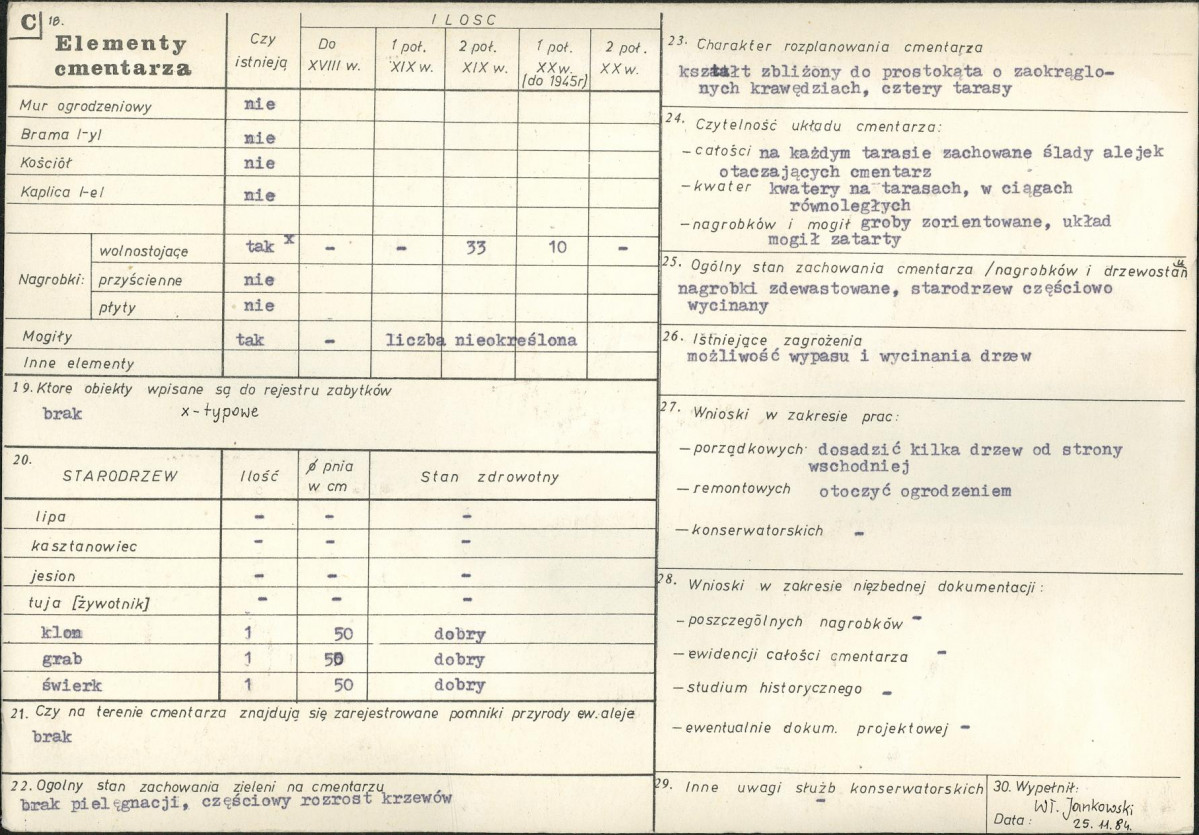 C 18. Elementy cmentarza
Czy istnieją
ILOSC
Do XVIII w.
1 poł. XIX w.
2 poł. XIX w.
1 poł. XX w. (do 1945r)
2 poł. XX w.
Mur ogrodzeniowy nie
Brama /-y/ nie
Kościół nie
Kaplica /-e/ nie
Nagrobki: wolnostojące tak x - - 33 10 -
przyścienne nie
płyty nie
Mogiły tak - liczba nieokreślona
Inne elementy
19. Ktore obiekty wpisane są do rejestru zabytków
brak x - typowe
20. STARODRZEW Ilość ø pnia w cm Stan zdrowotny
lipa - - -
kasztanowiec - - -
jesion - - -
tuja [żywotnik] - - -
klon 1 50 dobry
grab 1 50 dobry
świerk 1 50 dobry
21. Czy na terenie cmentarza znajdują się zarejestrowane pomniki przyrody ew. aleje
brak
22. Ogolny stan zachowania zieleni na cmentarzu
brak pielęgnacji, częściowy rozrost krzewów
23. Charakter rozplanowania cmentarza
kształt zbliżony do prostokąta o zaokrąglo-
nych krawędziach, cztery tarasy
24. Czytelność układu cmentarza:
- całości na każdym tarasie zachowane ślady alejek
otaczających cmentarz
- kwater kwatery na tarasach, w ciągach
równoległych
- nagrobków i mogił groby zorientowane, układ
mogił zatarty
25. Ogólny stan zachowania cmentarza /nagrobków i drzewostanu
nagrobki zdewastowane, starodrzew częściowo
wycinany
26. Istniejące zagrożenia
możliwość wypasu i wycinania drzew
27. Wnioski w zakresie prac:
- porządkowych dosadzić kilka drzew od strony
wschodniej
- remontowych otoczyć ogrodzeniem
- konserwatorskich -
28. Wnioski w zakresie nięzbednej dokumentacji:
- poszczególnych nagrobków -
- ewidencji całości cmentarza -
- studium historycznego -
- ewentualnie dokum. projektowej -
29. Inne uwagi służb konserwatorskich
-
30. Wypełnił:
Wł. Jankowski
Data: 25.11.84.